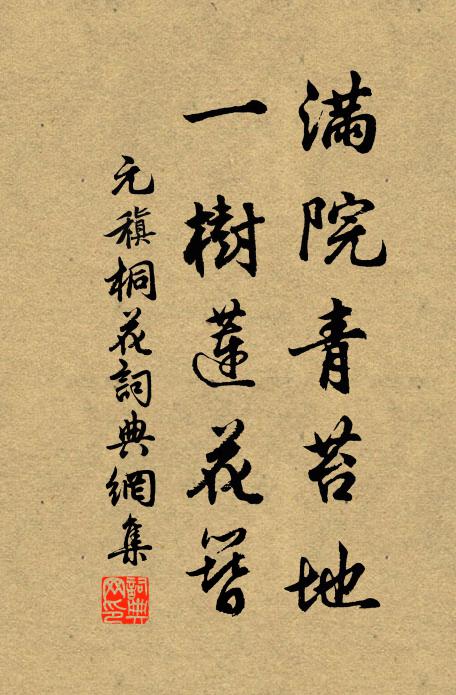 滿院青苔地
一樹蓮花簪
元稹桐花詞典網集
詞典網印